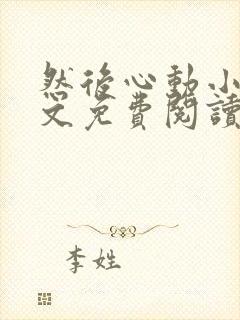 然後心動小
文免費閱讀
李姓